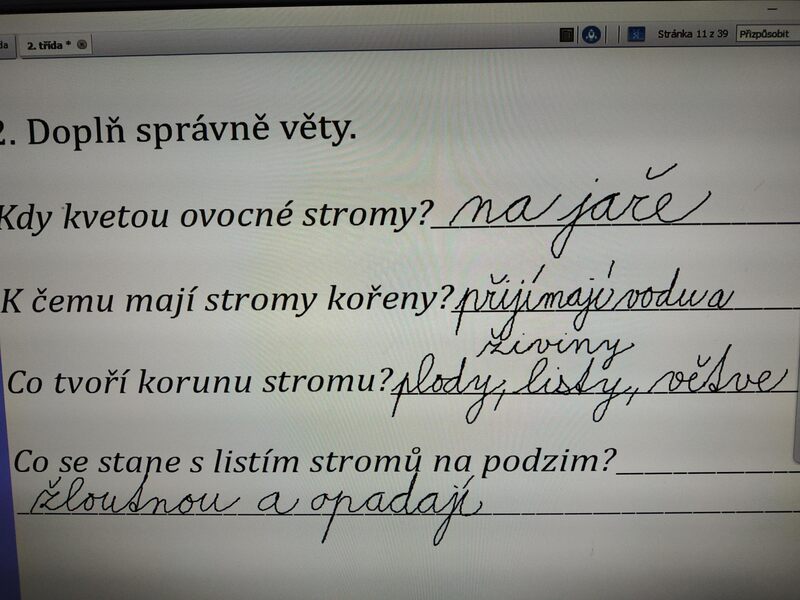 da 2. třída * Stránka 11 z 39 Přizpůsobit
2. Doplň správně věty.
Kdy kvetou ovocné stromy? na jaře
K čemu mají stromy kořeny? přijímají vodu a
živiny
Co tvoří korunu stromu? plody, listy, větve
Co se stane s listím stromů na podzim?
žloutnou a opadají